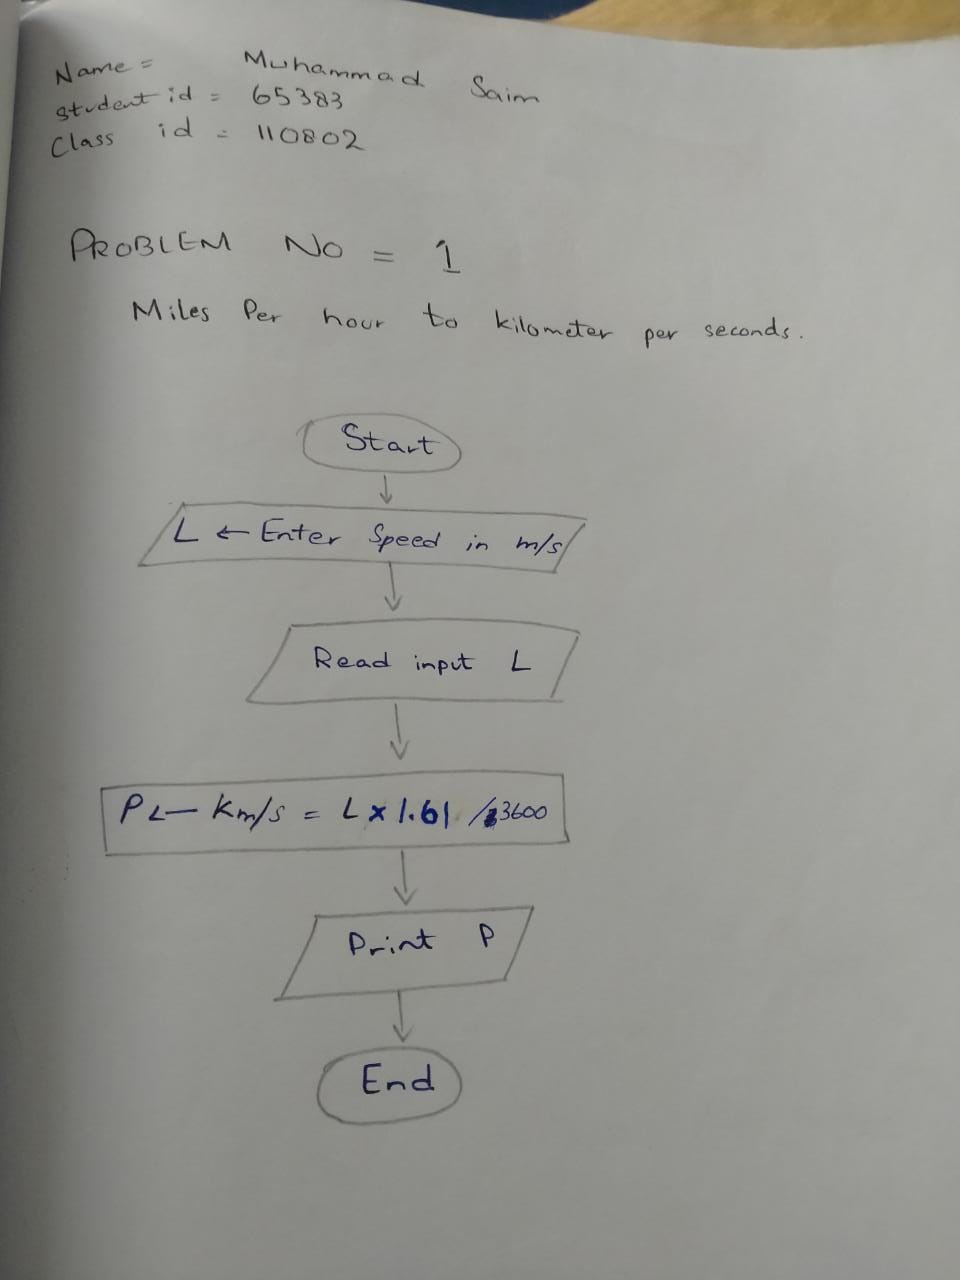 Name = Muhammad Saim
student id = 65383
Class id = 110802
PROBLEM NO = 1
Miles Per hour to kilometer per seconds.
Start
L ← Enter Speed in m/s
Read input L
P ← km/s = L × 1.61 / 3600
Print P
End